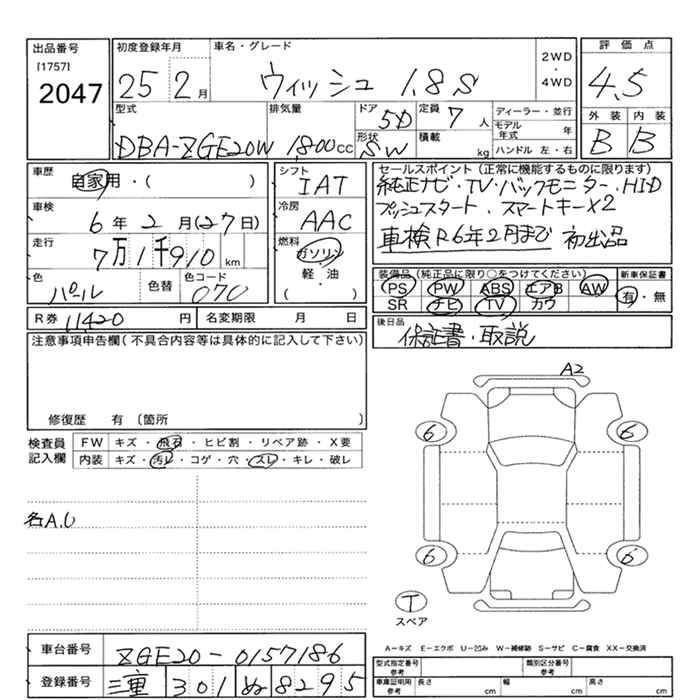 出品番号
[1757]
2047
初度登録年月
25 2月
車名・グレード
ウィッシュ 1.8S
2WD
・
4WD
評価点
4.5
外装 内装
B B
型式
DBA-ZGE20W
排気量
1,800cc
ドア
5D
形状
SW
定員 7人
積載 kg
ディーラー・並行
モデル年式 年
ハンドル 左・右
車歴
自家用・( )
車検
6年2月(27日)
走行
7万1千910km
色
パール
色替
色コード
070
シフト
IAT
冷房
AAC
燃料
ガソリン
・
軽・油
( )
セールスポイント(正常に機能するものに限ります)
純正ナビ・TV・バックモニター、HID
プッシュスタート、スマートキーX2
車検R6年2月まで 初出品
装備品(純正品に限り○をつけてください)
PS PW ABS エアB AW
SR ナビ TV カワ
新車保証書
有・無
R券 11,420円
名変期限 月 日
後日品
保証書・取説
注意事項申告欄(不具合内容等は具体的に記入して下さい)
修復歴 有 〔箇所 〕
検査員
記入欄
FW キズ・飛石・ヒビ割・リペア跡・X要
内装 キズ・汚レ・コゲ・穴・スレ・キレ・破レ
名A.U
A2
6 6
6 6
T
スペア
A―キズ E―エクボ U―凹み W―補修跡 S―サビ C―腐食 XX―交換済
車台番号 ZGE20-0157186
登録番号 三重 301 ぬ 8295
型式指定番号
参考
類別区分番号
参考
車庫証明用
参考
長さ cm 幅 cm 高さ cm